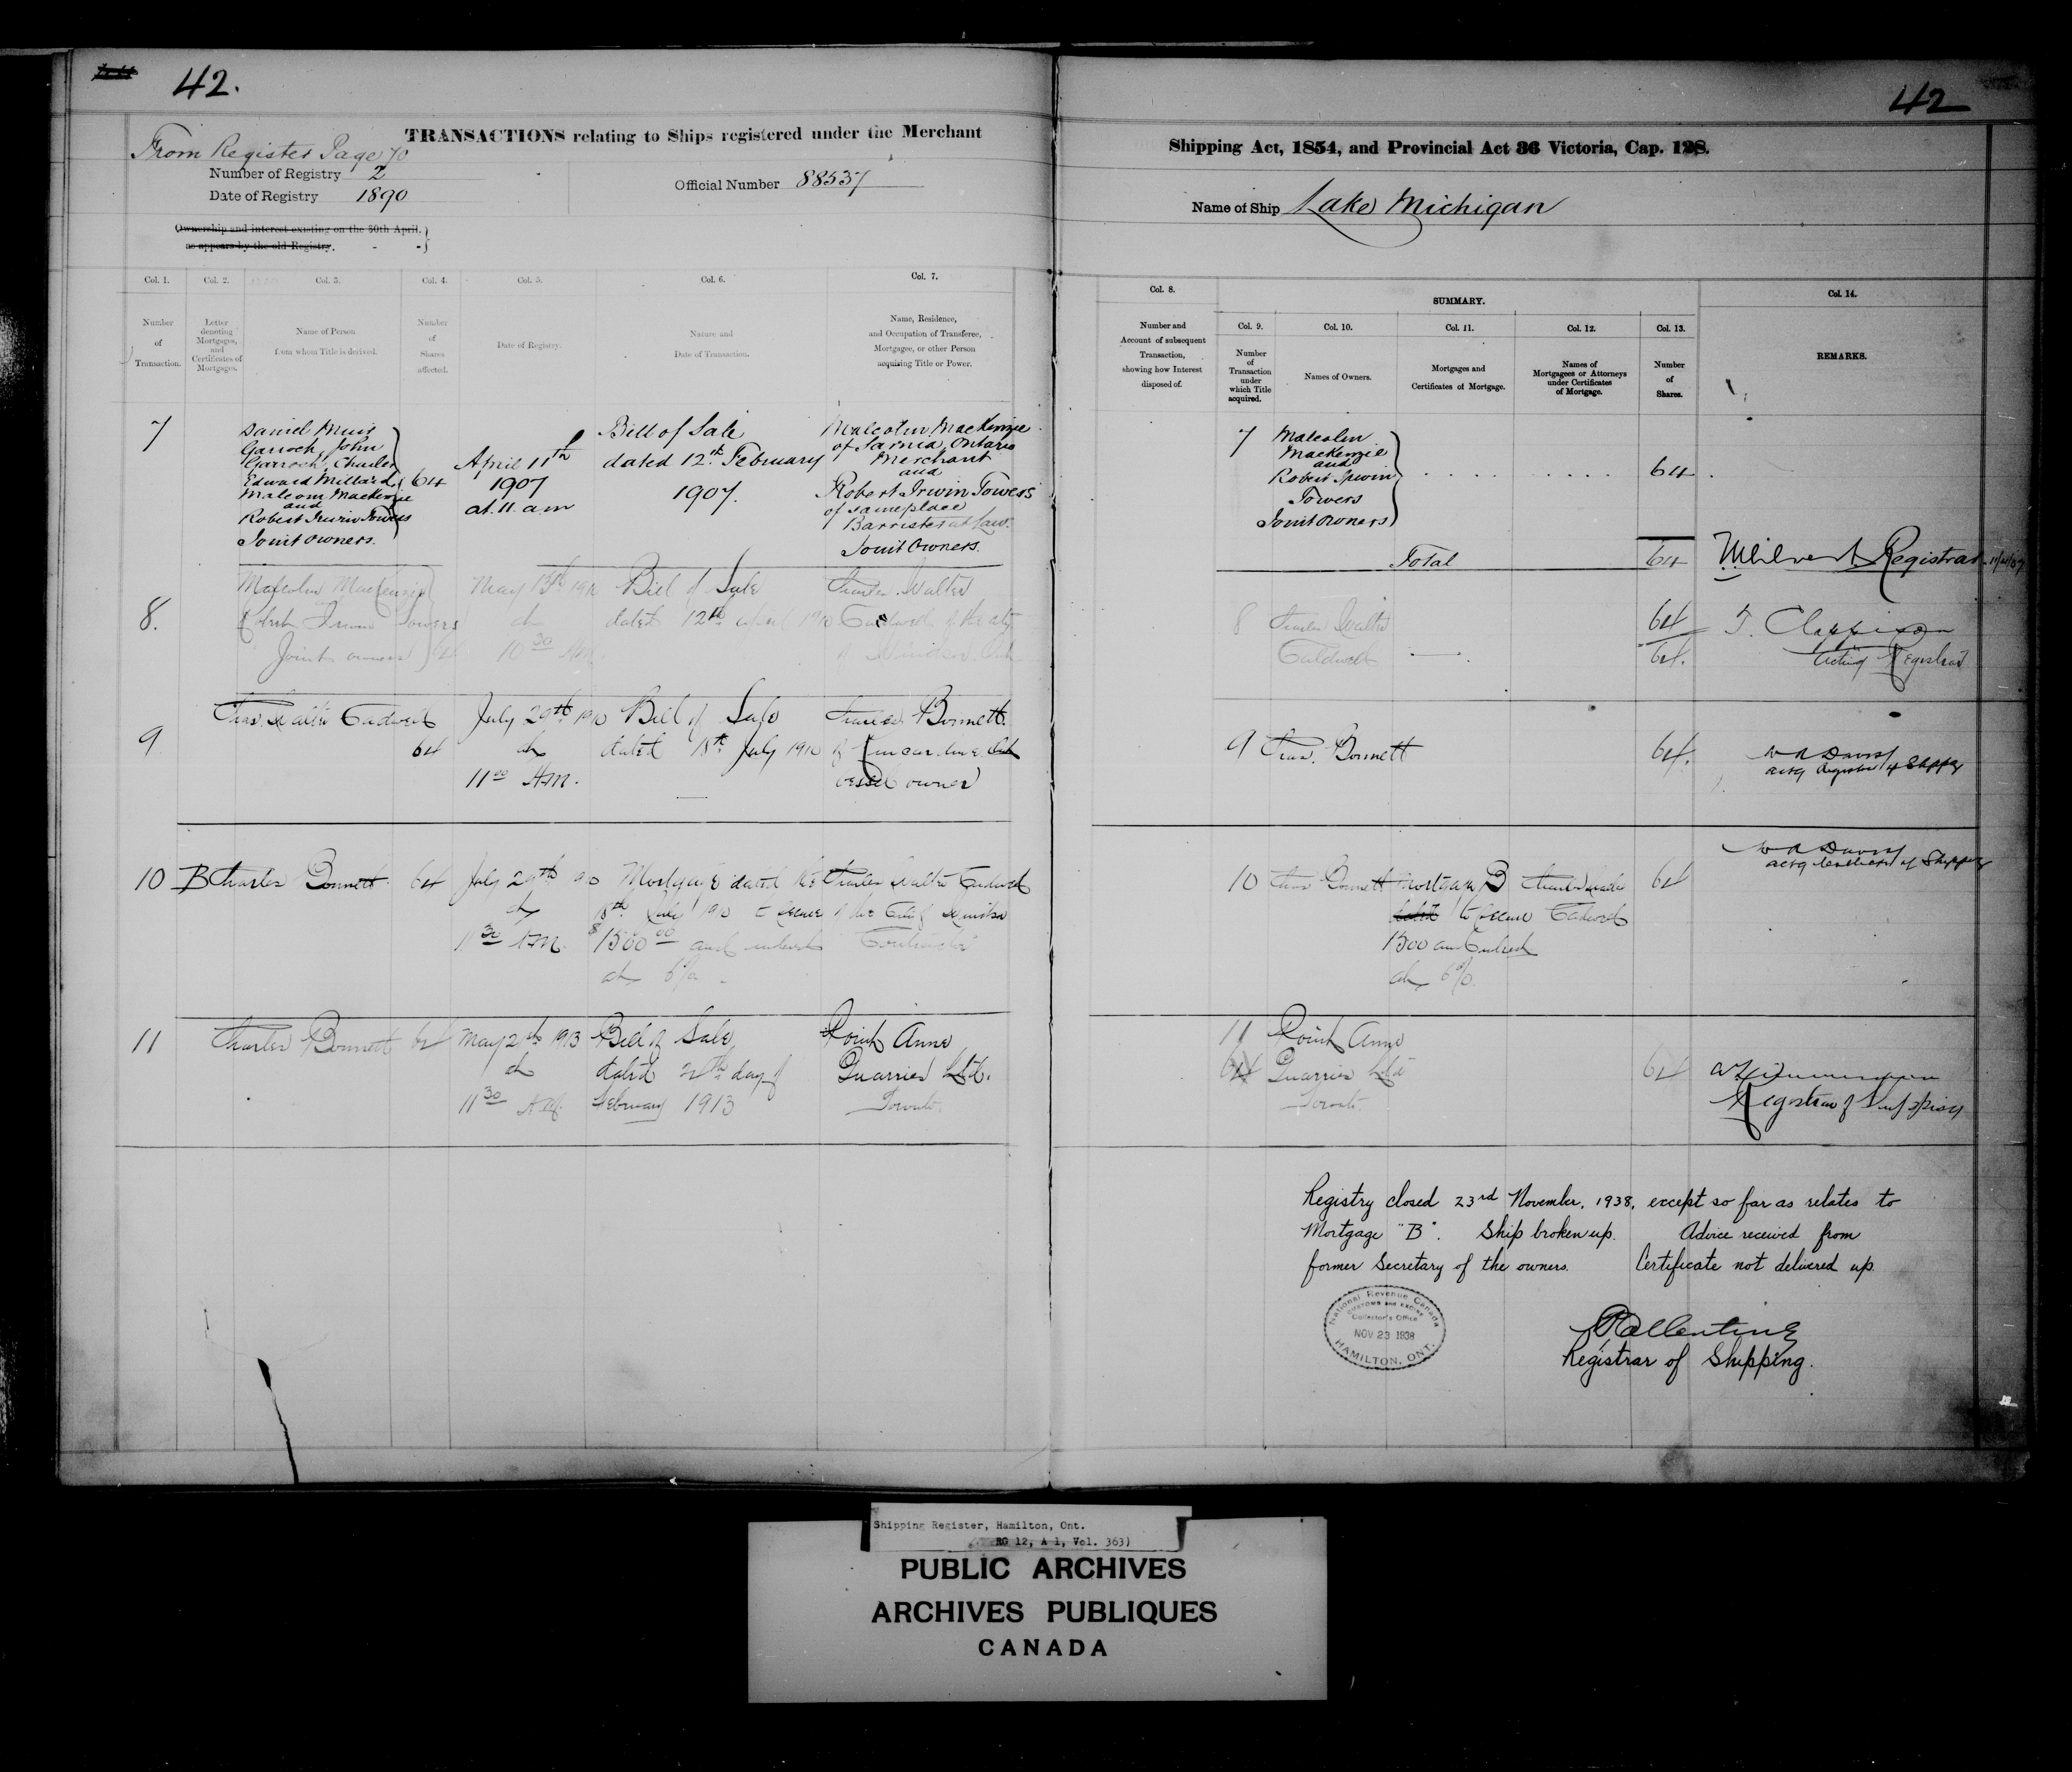 42.
42
TRANSACTIONS relating to Ships registered under the Merchant
Shipping Act, 1854, and Provincial Act 36 Victoria, Cap. 128.
From Register Page 70
Number of Registry 2
Date of Registry 1890
Official Number 88537
Name of Ship Lake Michigan
Ownership and interest existing on the 30th April,
as appears by the old Registry.
Col. 1.
Number
of
Transaction.
Col. 2.
Letter
denoting
Mortgages,
and
Certificates of
Mortgages.
Col. 3.
Name of Person
from whom Title is derived.
Col. 4.
Number
of
Shares
affected.
Col. 5.
Date of Registry.
Col. 6.
Nature and
Date of Transaction.
Col. 7.
Name, Residence,
and Occupation of Transferee,
Mortgagee, or other Person
acquiring Title or Power.
Col. 8.
Number and
Account of subsequent
Transaction,
showing how Interest
disposed of.
SUMMARY.
Col. 9.
Number
of
Transaction
under
which Title
acquired.
Col. 10.
Names of Owners.
Col. 11.
Mortgages and
Certificates of Mortgage.
Col. 12.
Names of
Mortgagees or Attorneys
under Certificates
of Mortgage.
Col. 13.
Number
of
Shares.
Col. 14.
REMARKS.
7
Daniel Muir
Garroch, John
Garroch, Charles
Edward Millard,
Malcom MacKenzie
and
Robert Irwin Towers
Joint owners.
64
April 11th
1907
at 11 a.m
Bill of Sale
dated 12th February
1907.
Malcolm MacKenzie
of Sarnia, Ontario
Merchant
and
Robert Irwin Towers
of same place
Barrister at Law.
Joint Owners.
7
Malcolm
MacKenzie
and
Robert Irwin
Towers
Joint owners
64
Total
64
Registrar
8.
Malcolm MacKenzie
Robert Irwin Towers
Joint owners
64
May 13th 1910
at
10 30 AM.
Bill of Sale
dated 12th April 1910
Charles Walter
Cadwell of the city
of Windsor Ont
8
Charles Walter
Cadwell
64
64.
Acting Registrar
9
Chas. Walter Cadwell
64
July 29th 1910
at
11 00 AM.
Bill of Sale
dated 18th July 1910
Charles Bonnett
of Kincardine Ont
vessel owner
9 Chas. Bonnett
64.
W A Davis
actg Registrar of Shippg
10
B
Charles Bonnett
64
July 29th 1910
at
11 30 AM.
Mortgage dated the
18th July 1910 to secure
$1500 00 and interest
at 6%.
Charles Walter Cadwell
of the City of Windsor
10
Chas Bonnett
Mortgage B
to secure
1500 and interest
at 6%.
Cadwell
64
W A Davis
actg Registrar of Shipping
11
Charles Bonnett
64
May 2nd 1913
at
11 30 AM.
Bill of Sale
dated day of
February 1913
Point Anne
Quarries Ltd.
Toronto.
11
64
Point Anne
Quarries Ltd
Toronto.
64
Registrar of Shipping
Registry closed 23rd November, 1938, except so far as relates to
Mortgage "B". Ship broken up. Advice received from
former Secretary of the owners. Certificate not delivered up.
National Revenue Canada
CUSTOMS AND EXCISE
Collector's Office
NOV 23 1938
HAMILTON, ONT.
Registrar of Shipping.
Shipping Register, Hamilton, Ont.
RG 12, A 1, Vol. 363)
PUBLIC ARCHIVES
ARCHIVES PUBLIQUES
CANADA